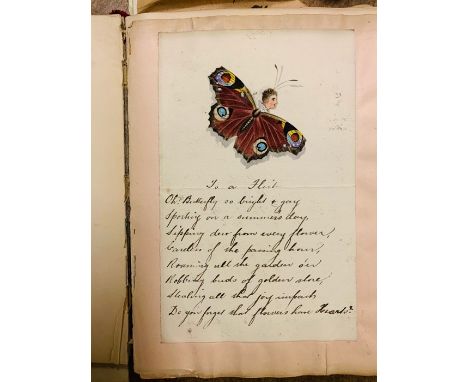 To a Flirt
Oh! Butterfly so bright & gay
Sporting on a summers day,
Sipping dew from every flower,
Careless of the passing hour,
Roaming all the garden o'er
Robbing buds of golden store,
Stealing all that joy imparts
Do you forget that flowers have Hearts?